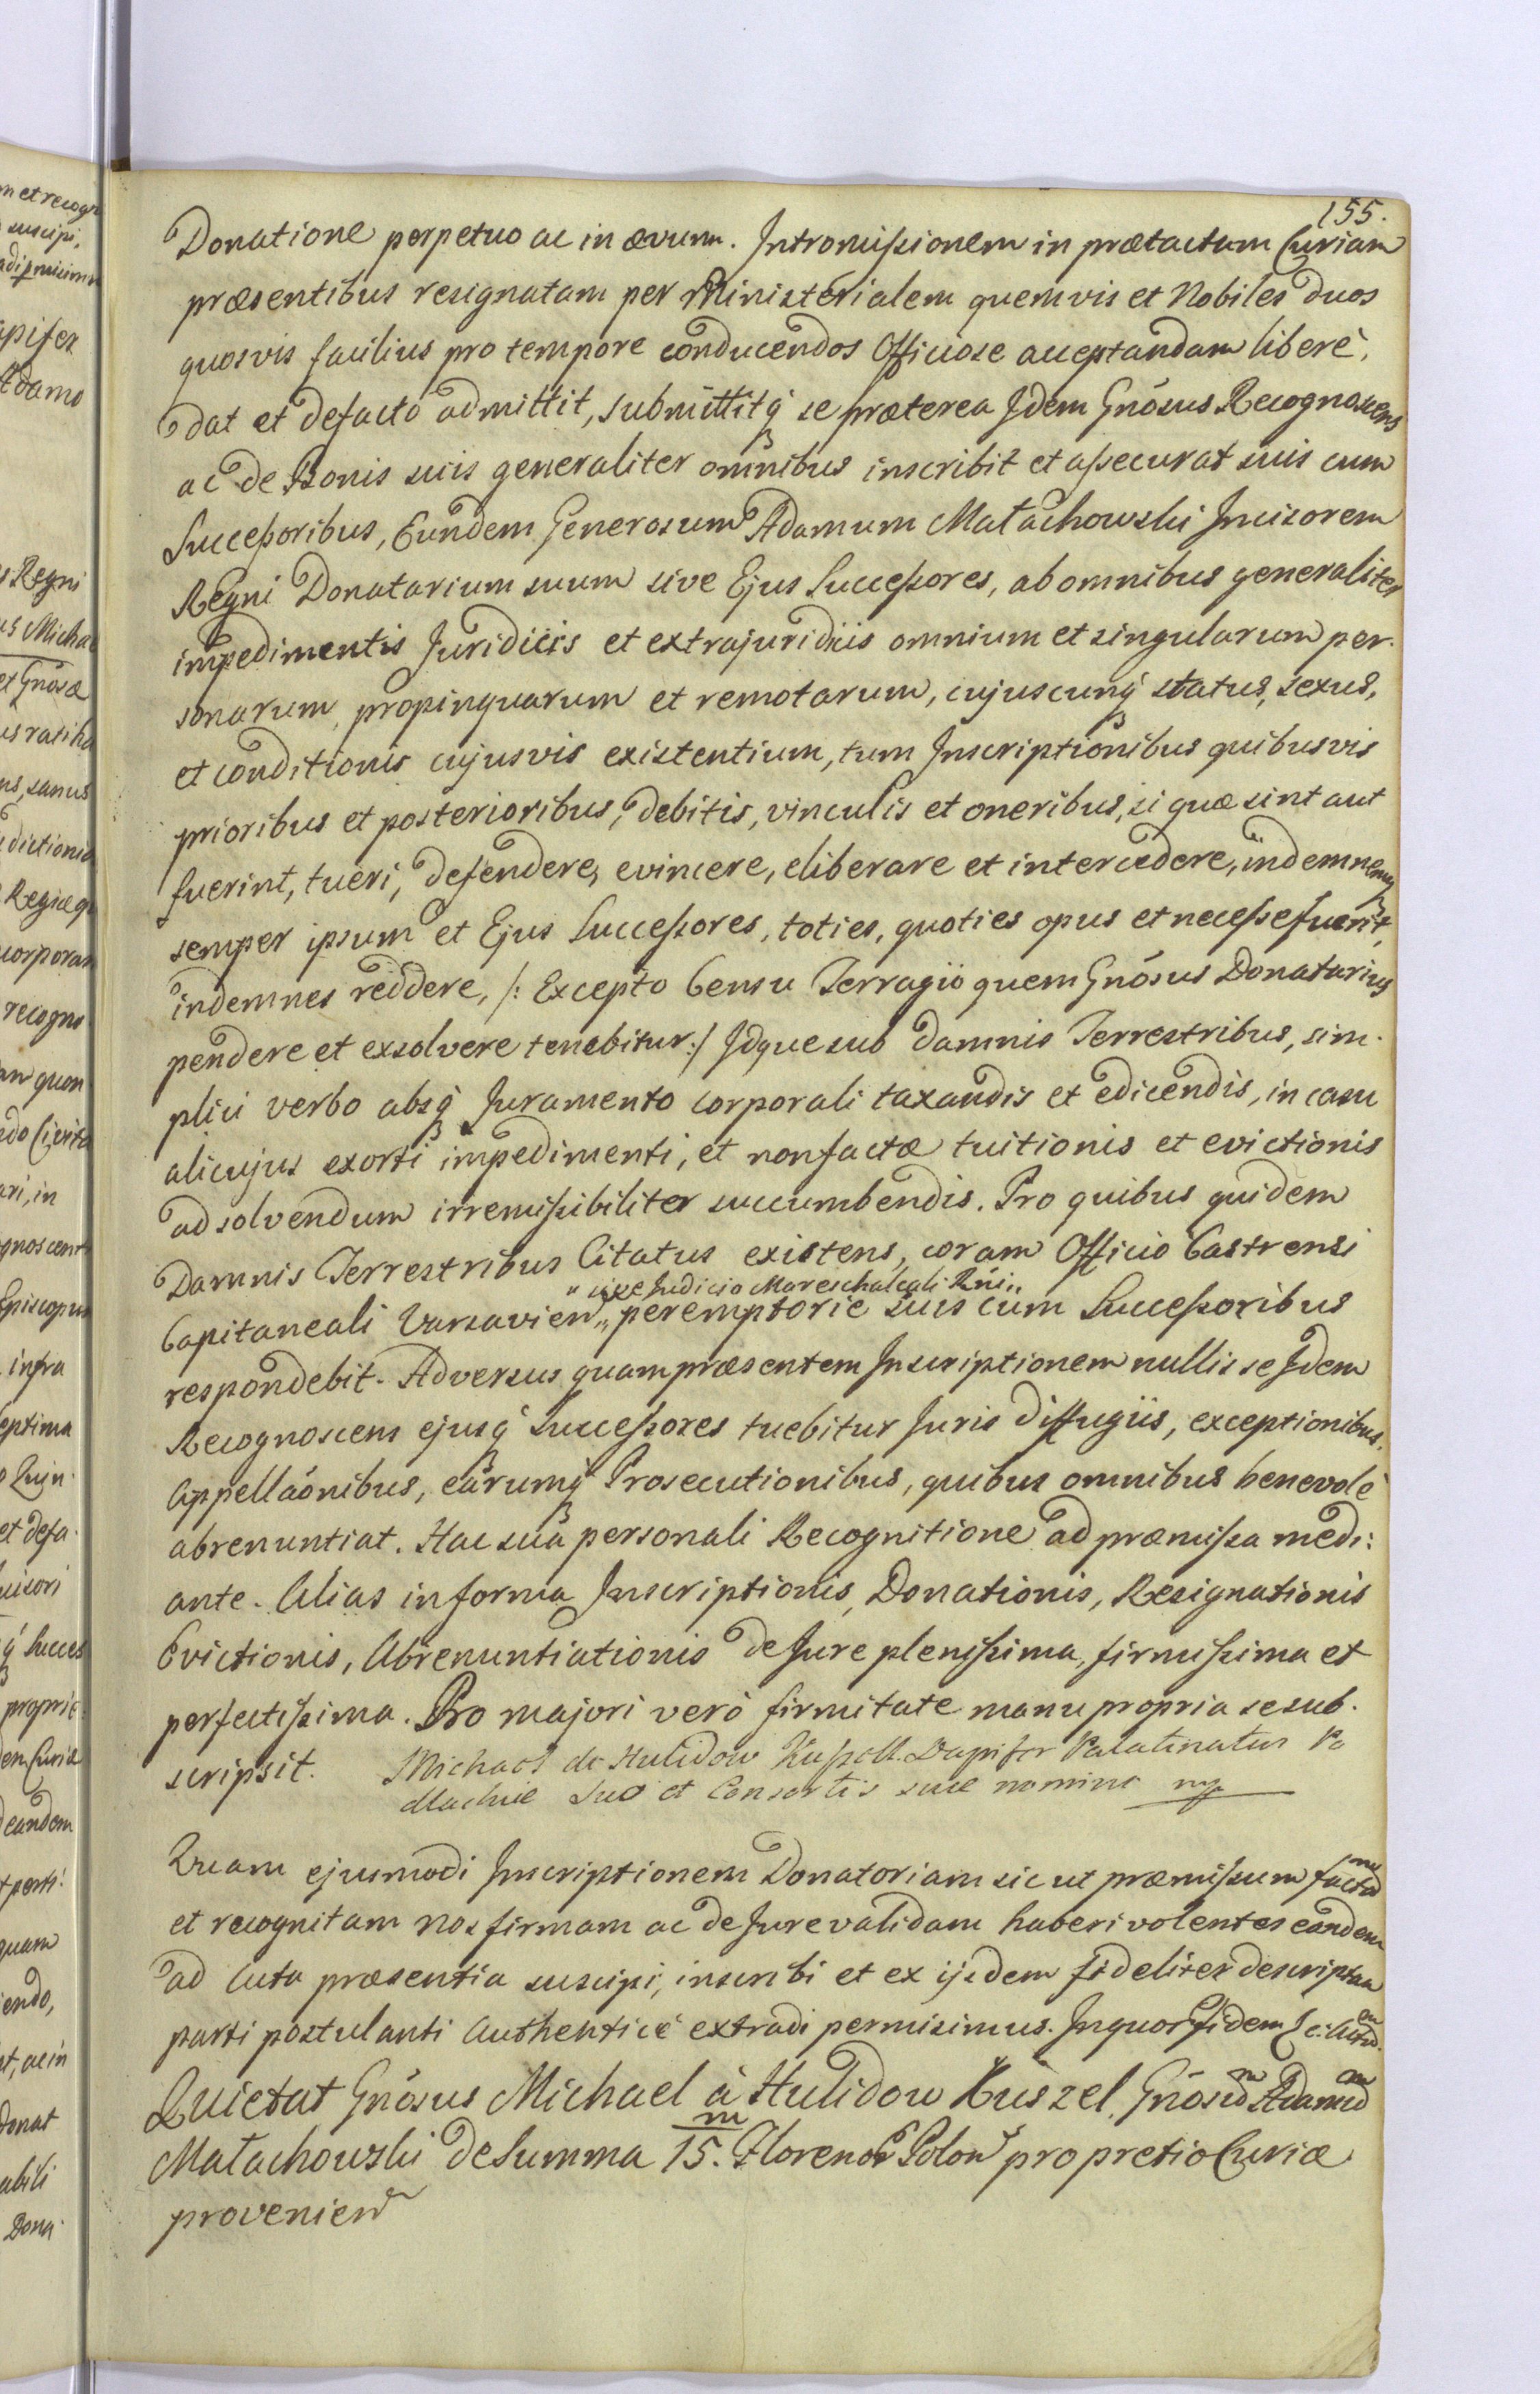 155.
Donatione perpetuo ac in ævum. Intromissionem in prætactam Curiam
præsentibus resignatam per Ministerialem quemvis et Nobiles duos
quosvis facilius pro tempore conducendos Officiose acceptandam liberè,
dat et defacto admittit, submittitq́ se præterea Idem Gnósus Recognoscens
ac de Bonis suis generaliter omnibus inscribit et assecurat suis cum
Successoribus, Eundem Generosum Adamum Małachowski Incisorem
Regni Donatarium suum sive Ejus Successores, ab omnibus generaliter
impedimentis Juridicis et extrajuridicis omnium et singularum per-
sonarum, propinquarum et remotarum, cujuscunq́ status, sexus,
et conditionis cujusvis existentium, tum Inscriptionibus quibusvis
prioribus et posterioribus, debitis, vinculis et oneribus, si quæ sint aut
fuerint, tueri, defendere, evincere, eliberare et intercedere, indemnemq́
semper ipsum et Ejus Successores, toties, quoties opus et necesse fuerit,
indemnes reddere, /: Excepto Censu Terragii quem Gnósus Donatarius
pendere et exsolvere tenebitur :/ Idque sub damnis Terrestribus, sim-
plici verbo absq́ Juramento corporali taxandis et edicendis, in casu
alicujus exorti impedimenti, et non factæ tuitionis et evictionis
ad solvendum irremissibiliter succumbendis. Pro quibus quidem
Damnis Terrestribus Citatus existens, coram Officio Castrensi
" sive Judicio Mareschalcali Rńi "
Capitaneali Varsavien " peremptorie suis cum Successoribus
respondebit. Adversus quam præsentem Inscriptionem nullis se Idem
Recognoscens ejusq́ Successores tuebitur Juris diffugiis, exceptionibus,
Appellaónibus, earumq́ Prosecutionibus, quibus omnibus benevolè
abrenuntiat. Hac suâ personali Recognitione ad præmissa medi:
ante. Alias in forma Inscriptionis, Donationis, Resignationis
Evictionis, Abrenuntiationis de Jure plenissima, firmissima et
perfectissima. Pro majori verò firmitate manu propria se sub-
scripsit. Michael de Hulidow Kuszell Dapifer Palatinatus Po
dlachiæ suo et Consortis suæ nomine mp
Quam ejusmodi Inscriptionem Donatoriam sic ut præmissum factam
et recognitam nos firmam ac de Jure validam haberi volentes eandem
ad Acta præsentia suscipi, inscribi et ex ijsdem fideliter descriptam
parti postulanti Authenticè extradi permisimus. In quor fidem
Quietat Gnósus Michael à Hulidow Kuszel, Gnósum Adamum
Małachowski de summa 15.m Florenor Polon pro pretio Curiæ
provenien